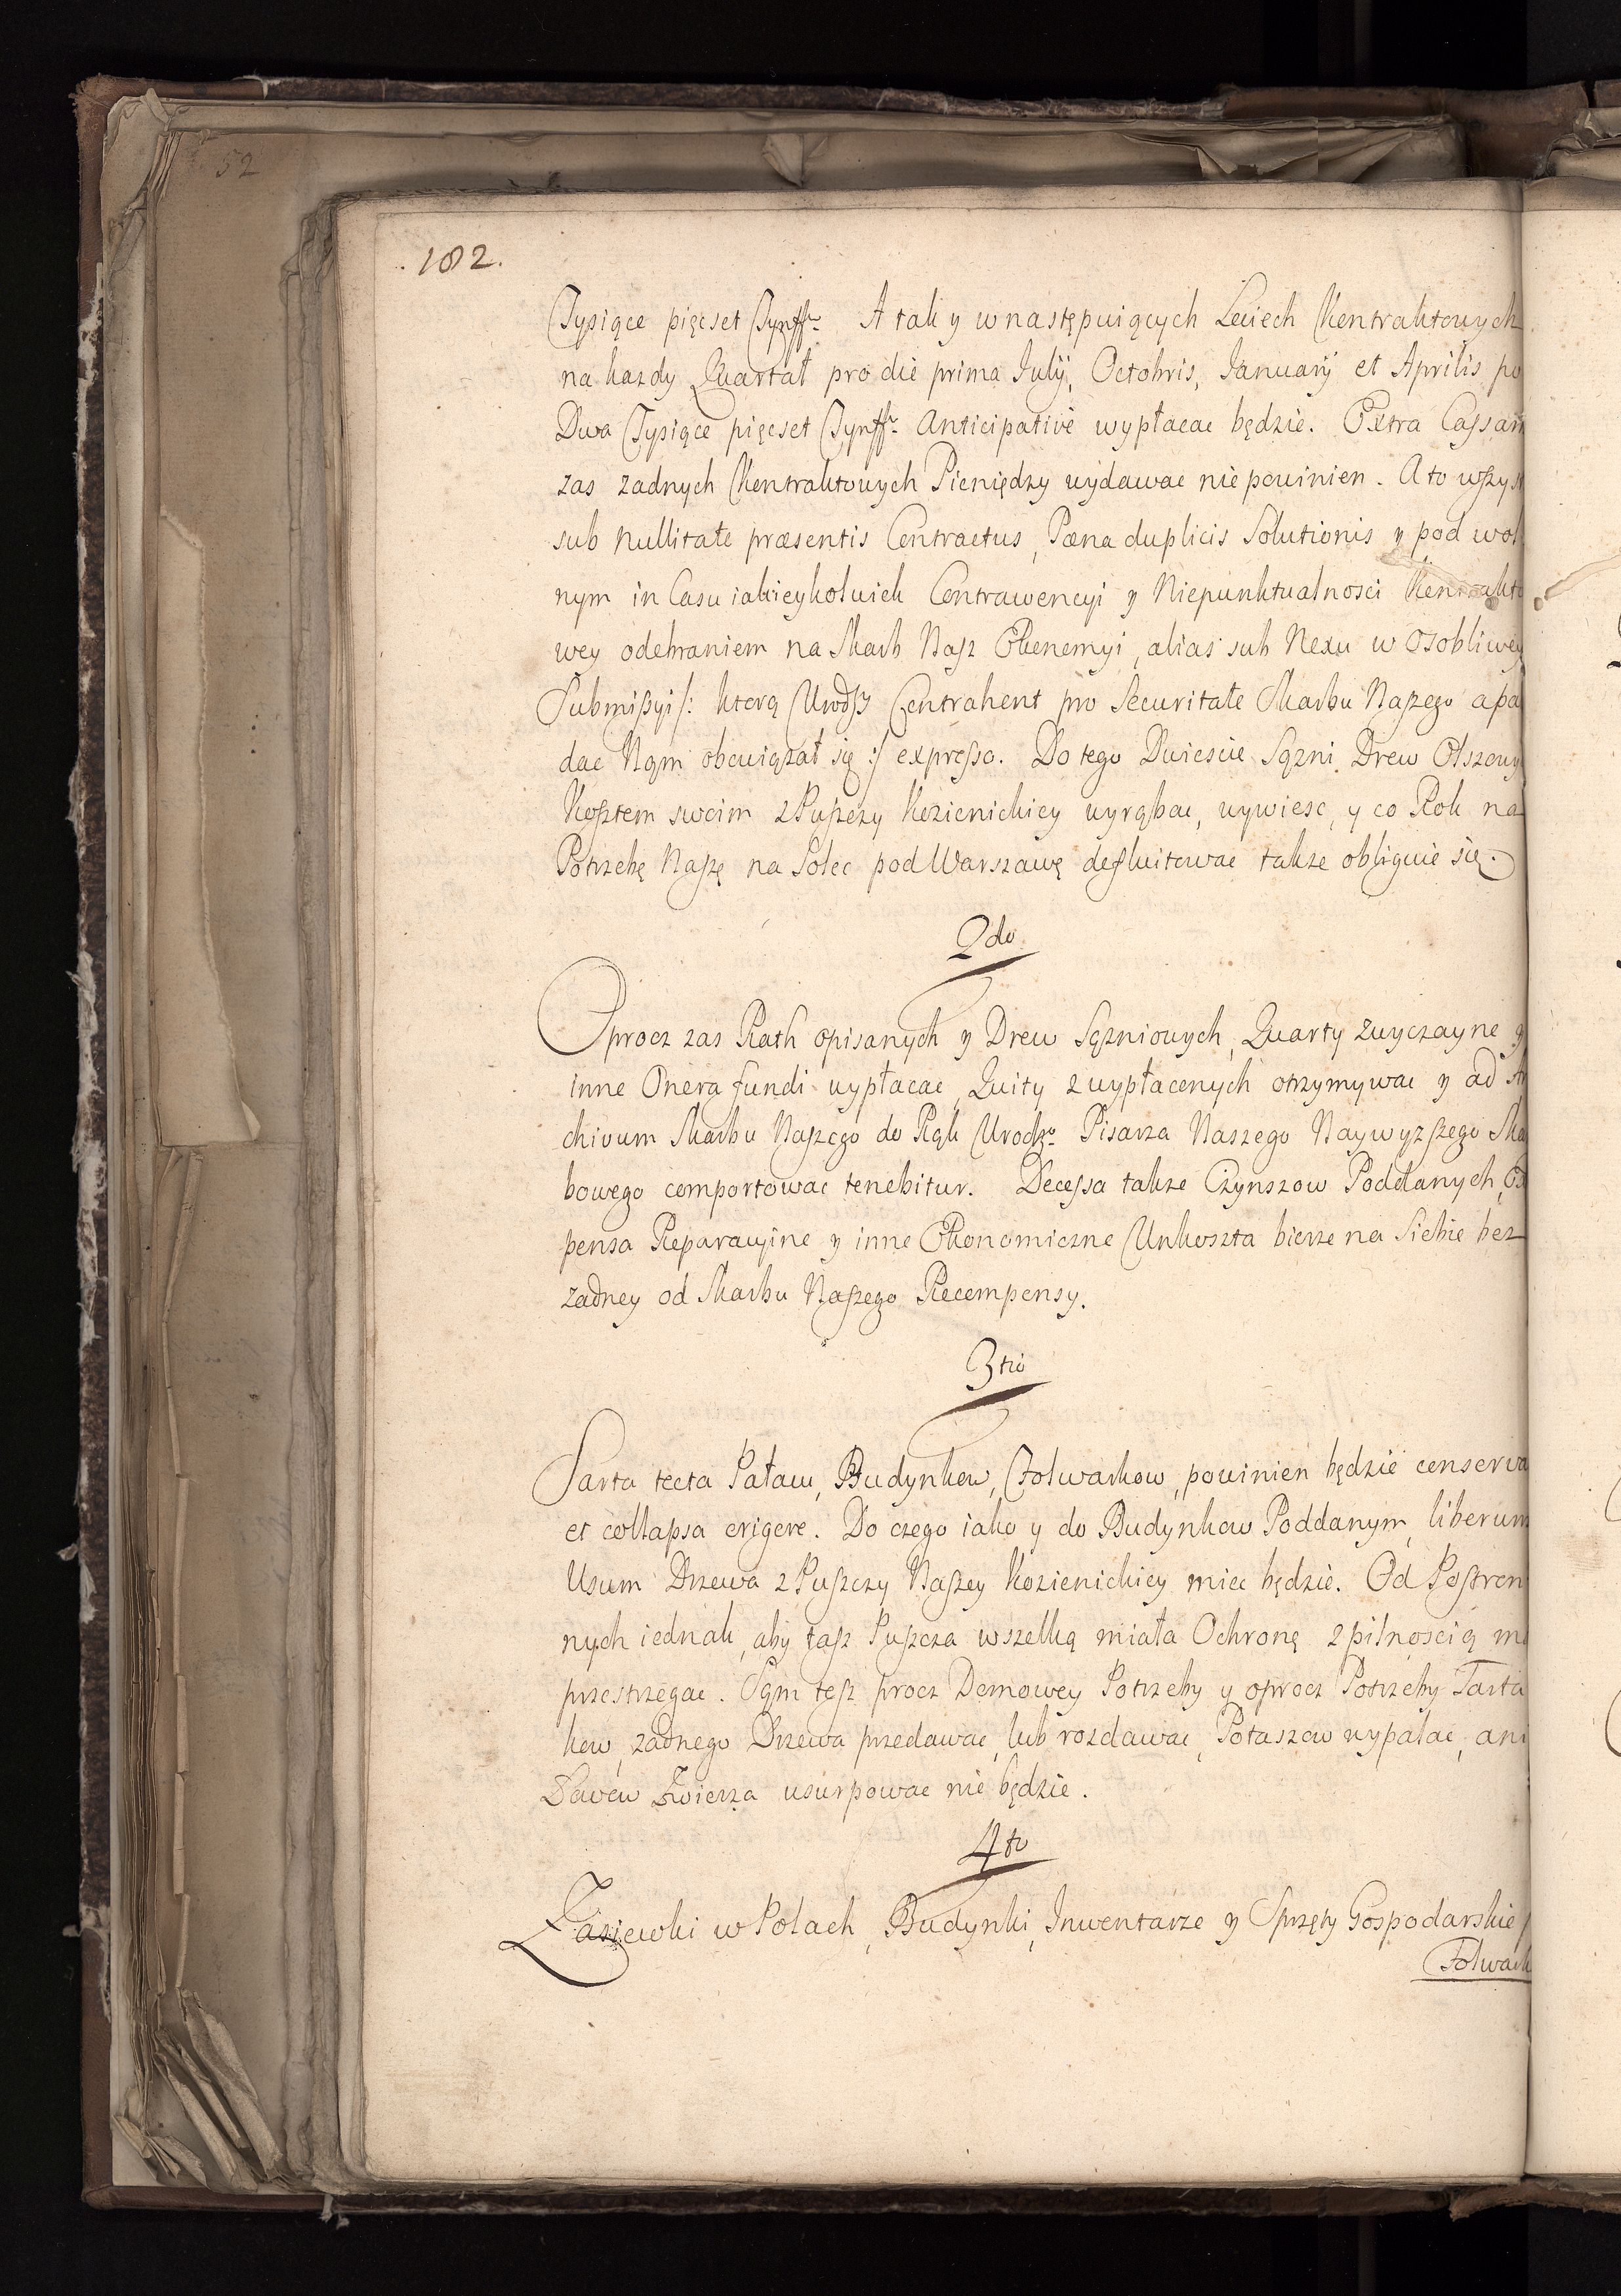 52
.182.
Tysiące pięcset Tynffw. A tak y w następuiących Leciech Kontraktowych
na kazdy Quartał pro die prima Julij, Octobris, Januarij et Aprilis po
Dwa Tysiące pięcset Tynffw. Anticipativè wypłacac będzie. Extra Cassam
zas zadnych Kontraktowych Pieniędzy wydawac nie powinien. A to wszys
sub nullitate præsentis Contractus, Pœna duplicis Solutionis y pod wol
nym in Casu iakieykolwiek Contrawencyi y Niepunktualnosci Kontrakto
wey odebraniem na Skarb Nasz Ekonomyi, alias sub Nexu w Osobliwey
Submissyi /: ktorą Urodzy Contrahent pro Securitate Skarbu Naszego apa
dac Nam obowiązał się :/ expresso. Do tego Dwiescie Sązni Drew Olszowy
Kosztem swoim z Puszczy Kozienickiey wyrąbac, wywiesc, y co Rok na
Potrzebę Naszę na Solec pod Warszawę defluitowac takze obliguie się.
2do
Oprocz zas Rath opisanych y Drew Sązniowych, Quarty zwyczayne y
inne Onera fundi wypłacac, Quity z wypłaconych otrzymywac y ad Ar
chivum Skarbu Naszego do Rąk Urodzo. Pisarza Naszego Naywyzszego Ska
bowego comportowac tenebitur. Decessa takze Czynszow Poddanych, Ex
pensa Reparacyine y inne Ekonomiczne Unkoszta bierze na Siebie bez
zadney od Skarbu Naszego Recompensy.
3tio
Sarta tecta Pałacu, Budynkow, Folwarkow, powinien będzie conserva
et collapsa erigere. Do czego iako y do Budynkow Poddanym, liberum
Usum Drzewa z Puszczy Naszey Kozienickiey miec będzie. Od Postron
nych iednak, aby taż Puszcza wszelką miała Ochronę z pilnoscią m
przestrzegac. Sam też procz Domowey Potrzeby y oprocz Potrzeby Tarta
kow, zadnego Drzewa przedawac, lub rozdawac, Potaszow wypalac, ani
Łowow Zwierza usurpowac nie będzie.
4to
Zasiewki w Polach, Budynki, Inwentarze y Sprzęty Gospodarskie
Folwark